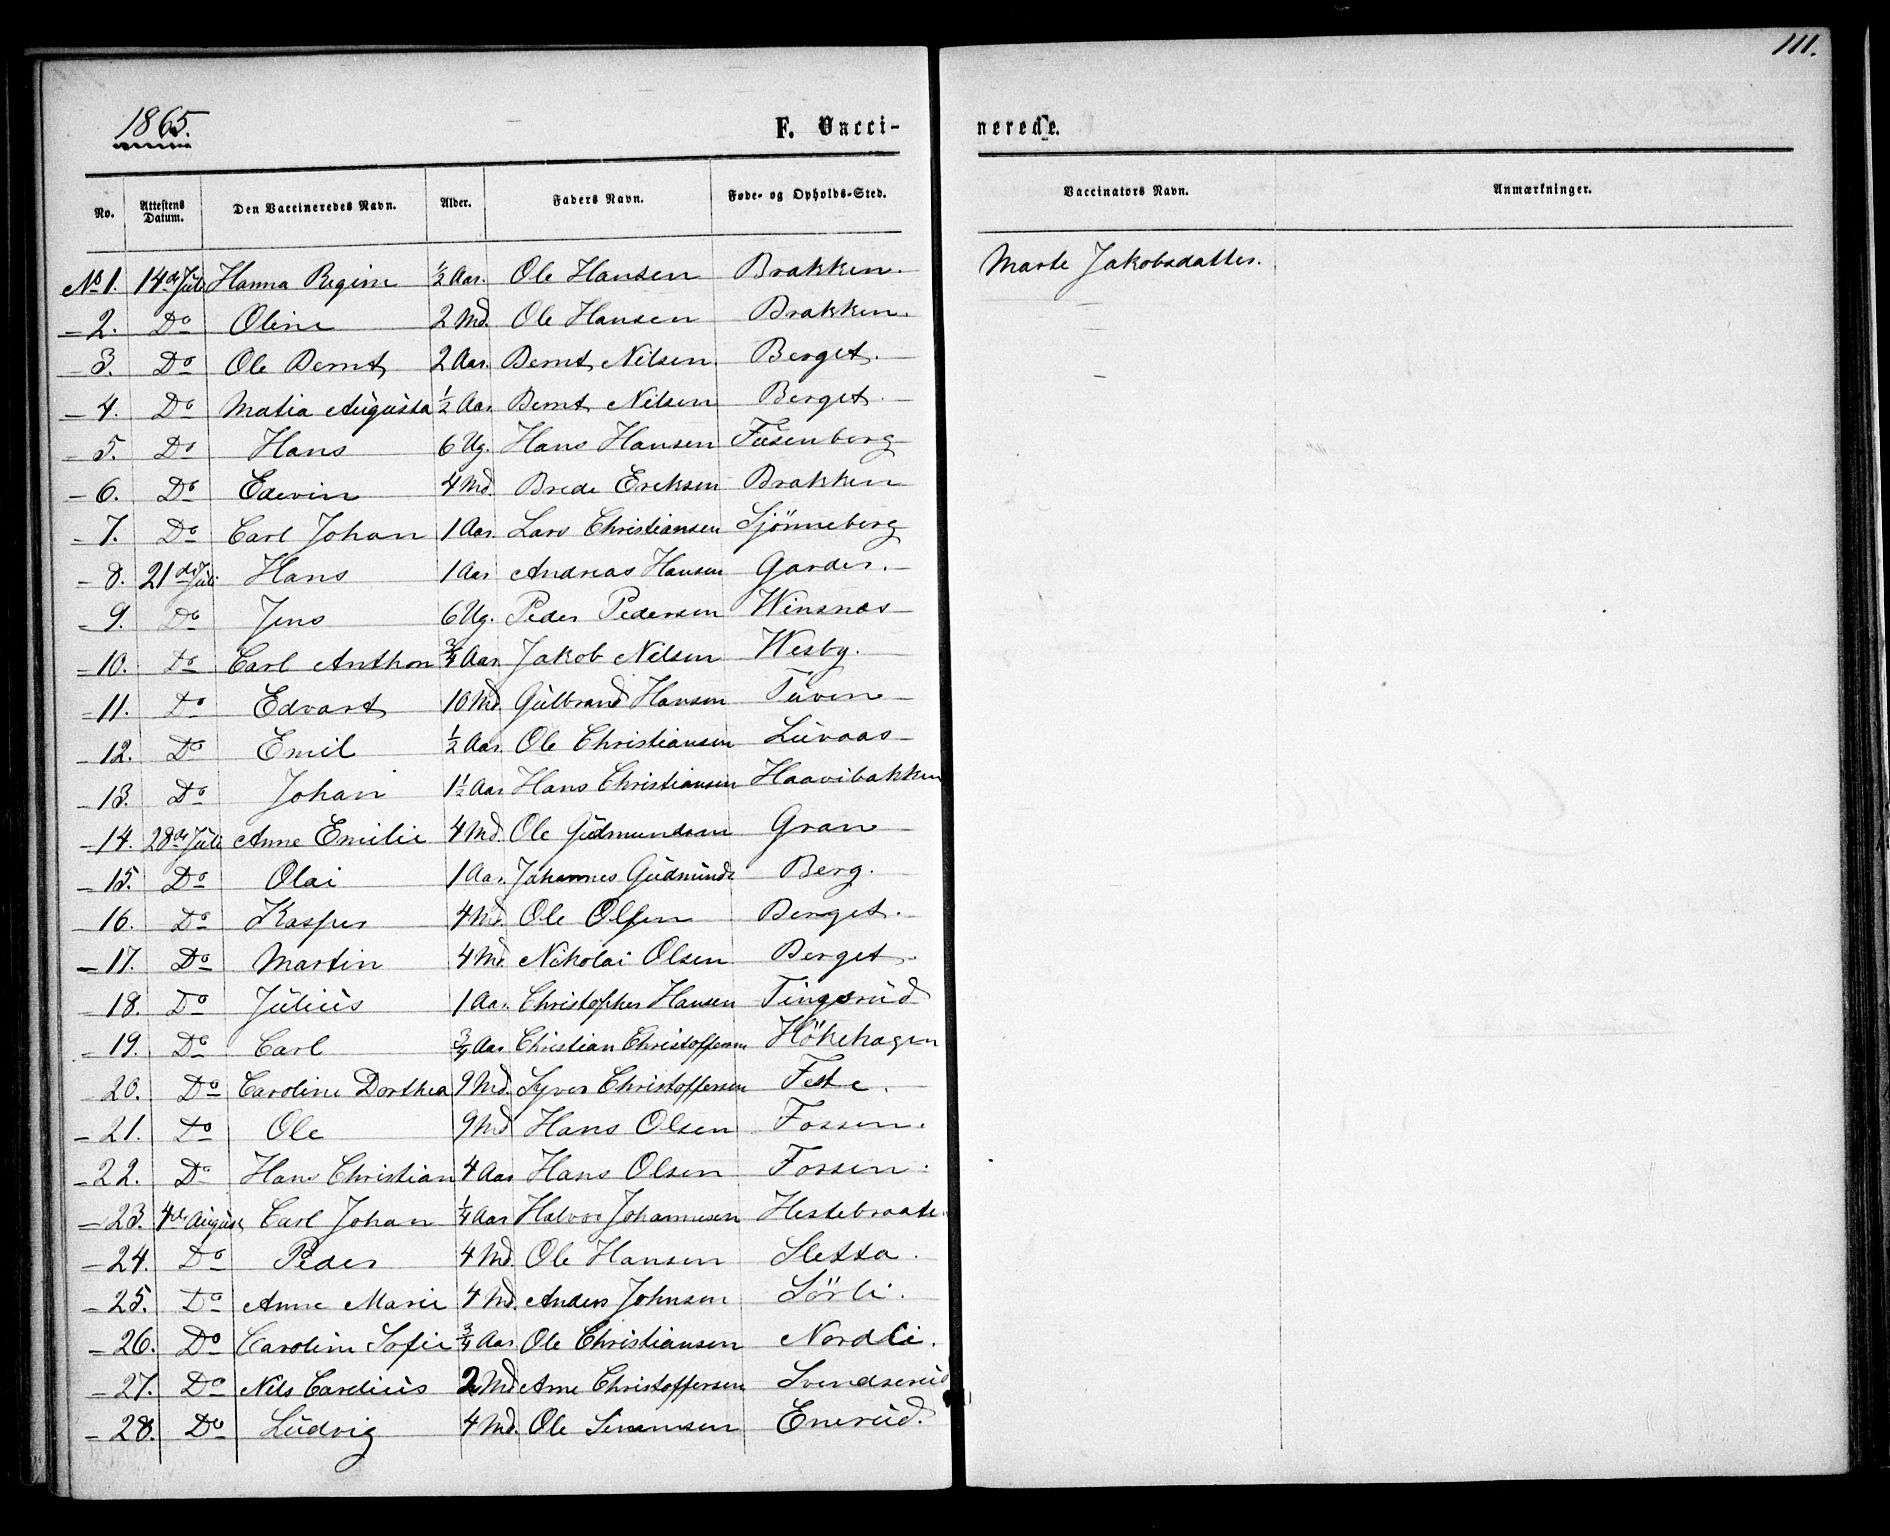 111.
1865.
F. Vacci- nerede.
No. Attestens Datum. Den Vaccineredes Navn. Alder. Faders Navn. Føde- og Opholds-Sted. Vaccinators Navn. Anmærkninger.
No 1. 14de Juli Hanna Regine ½ Aar. Ole Hansen Brakken. Marte Jakobsdatter.
- 2. Do Oline 2 Md. Ole Hansen Brakken.
- 3. Do Ole Bernt 2 Aar. Bernt Nilsen Berget.
- 4. Do Matia Augusta ½ Aar Bernt Nilsen Berget.
- 5. Do Hans 6 Ug. Hans Hansen Fusenberg
- 6. Do Edevin 4 Md. Brede Ereksen Brakken
- 7. Do Carl Johan 1 Aar. Lars Christiansen Sjönneberg
- 8. 21de Juli Hans 1 Aar Andreas Hansen Garder.
- 9. Do Jens 6 Ug. Peder Pedersen Winsnas
- 10. Do Carl Anthon ¾ Aar Jakob Nilsen Wesby.
- 11. Do Edvart 10 Md. Gulbrand Hansen Tuven
- 12. Do Emil ½ Aar. Ole Christiansen Luvaas
- 13. Do Johan 1½ Aar Hans Christiansen Haavibakken
- 14. 28de Juli Anne Emilie 4 Md. Ole Gudmundsen Gran
- 15. Do Olai 1 Aar. Johannes Gudmunds Berg.
- 16. Do Kasper 4 Md. Ole Olsen Berget.
- 17. Do Martin 4 Md. Nikolai Olsen Berget.
- 18. Do Julius 1 Aar. Christopher Hansen Tingsrud
- 19. Do Carl ¾ Aar Christian Christoffersen Hökehagen
- 20. Do Caroline Dorthea 9 Md. Syver Christoffersen
- 21. Do Ole 9 Md Hans Olsen Fossen.
- 22. Do Hans Christian 4 Aar Hans Olsen Fossen.
- 23. 4de August Carl Johan ¼ Aar Halvor Johannesen Hestebraate
- 24. Do Peder 4 Md. Ole Hansen Sletta.
- 25. Do Anne Marie 4 Md. Anders Johnsen Sörli.
- 26. Do Caroline Sofie ¾ Aar Ole Christiansen Nordli.
- 27. Do Nils Carelius 2 Md Arne Christoffersen Svendserud
- 28. Do Ludvig 4 Md. Ole Simensen Enerud.